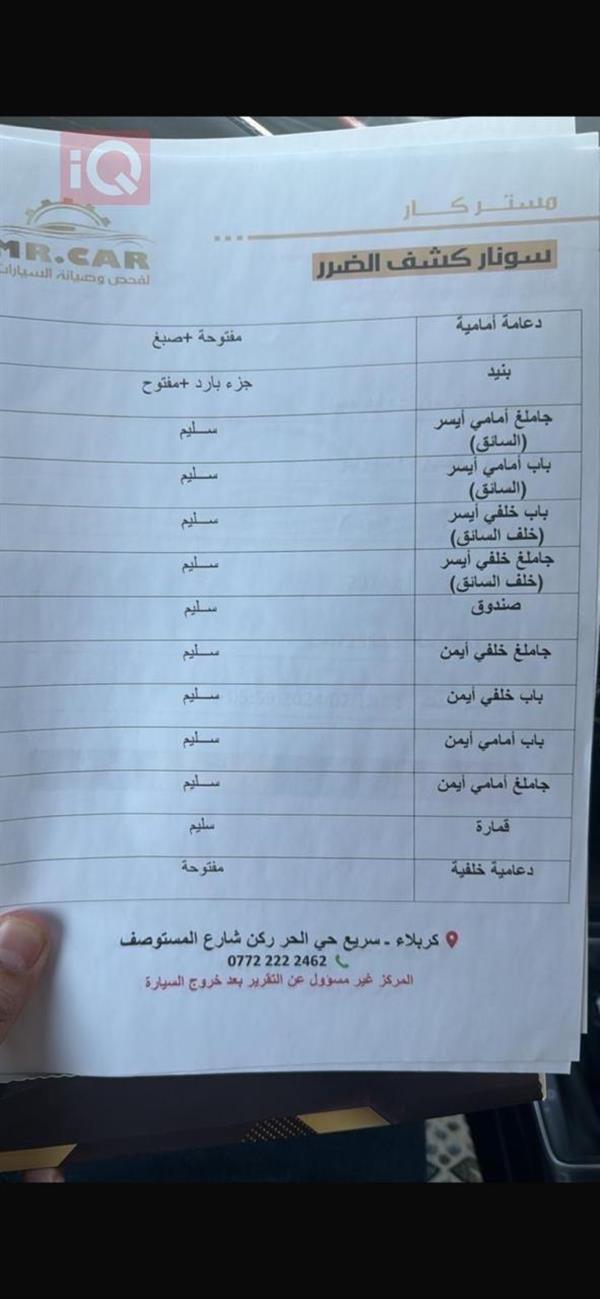 iQ
مستر كار
MR.CAR
لفحص وصيانة السيارات
سونار كشف الضرر
دعامة أمامية
مفتوحة +صبغ
بنيد
جزء بارد +مفتوح
جاملغ أمامي أيسر
(السائق)
سليم
باب أمامي أيسر
(السائق)
سليم
باب خلفي أيسر
(خلف السائق)
سليم
جاملغ خلفي أيسر
(خلف السائق)
سليم
صندوق
سليم
جاملغ خلفي أيمن
سليم
باب خلفي أيمن
سليم
باب أمامي أيمن
سليم
جاملغ أمامي أيمن
سليم
قمارة
سليم
دعامية خلفية
مفتوحة
كربلاء - سريع حي الحر ركن شارع المستوصف
0772 222 2462
المركز غير مسؤول عن التقرير بعد خروج السيارة